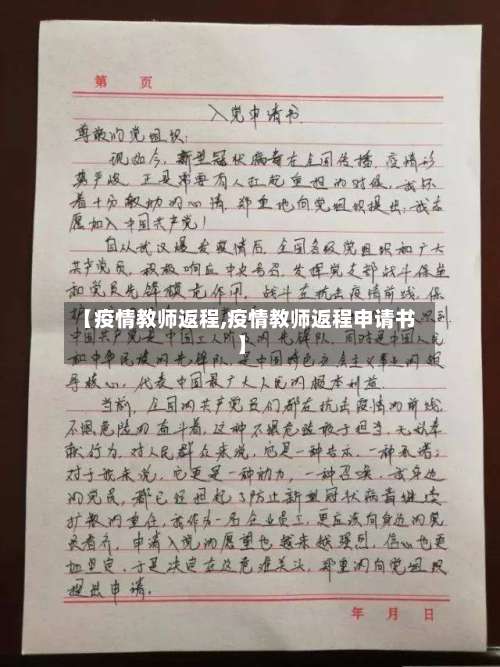 第 页
入党申请书
尊敬的党组织:
现如今,新型冠状病毒在全国传播,疫情形
势严峻,正是需要有人扛起重担的时候,我怀
着十分激动的心情,郑重地向党组织提出:我志
愿加入中国共产党!
自从武汉爆发疫情后,全国各级党组织和广大
共产党员,积极响应中央号召,发挥党支部战斗堡垒
和党员先锋模范作用,战斗在抗击疫情前线,保
【疫情教师返程,疫情教师返程申请书
】
中国共产党是中国工人阶级的先锋队,同时是中国人民
和中华民族的先锋队,是中国特色社会主义事业的领
导核心,代表中国最广大人民的根本利益.
当前,全国的共产党员们都在抗击疫情的前线
不惧危险的奋斗着,这种不惧危险敢于担当,无私奉
献行为,对人民群众来说,它是一种启示,一种承诺;
对于我来说,它更是一种动力,一种召唤.我身边
的党员,都已经担起了防止新型冠状病毒继续
扩散的重任,我作为一名企业员工,更应该向身边的党
员看齐,申请入党的愿望也越来越强烈,信心也更
加坚定,于是决定在这危难关头,郑重的向党组织
提出申请.
年 月 日